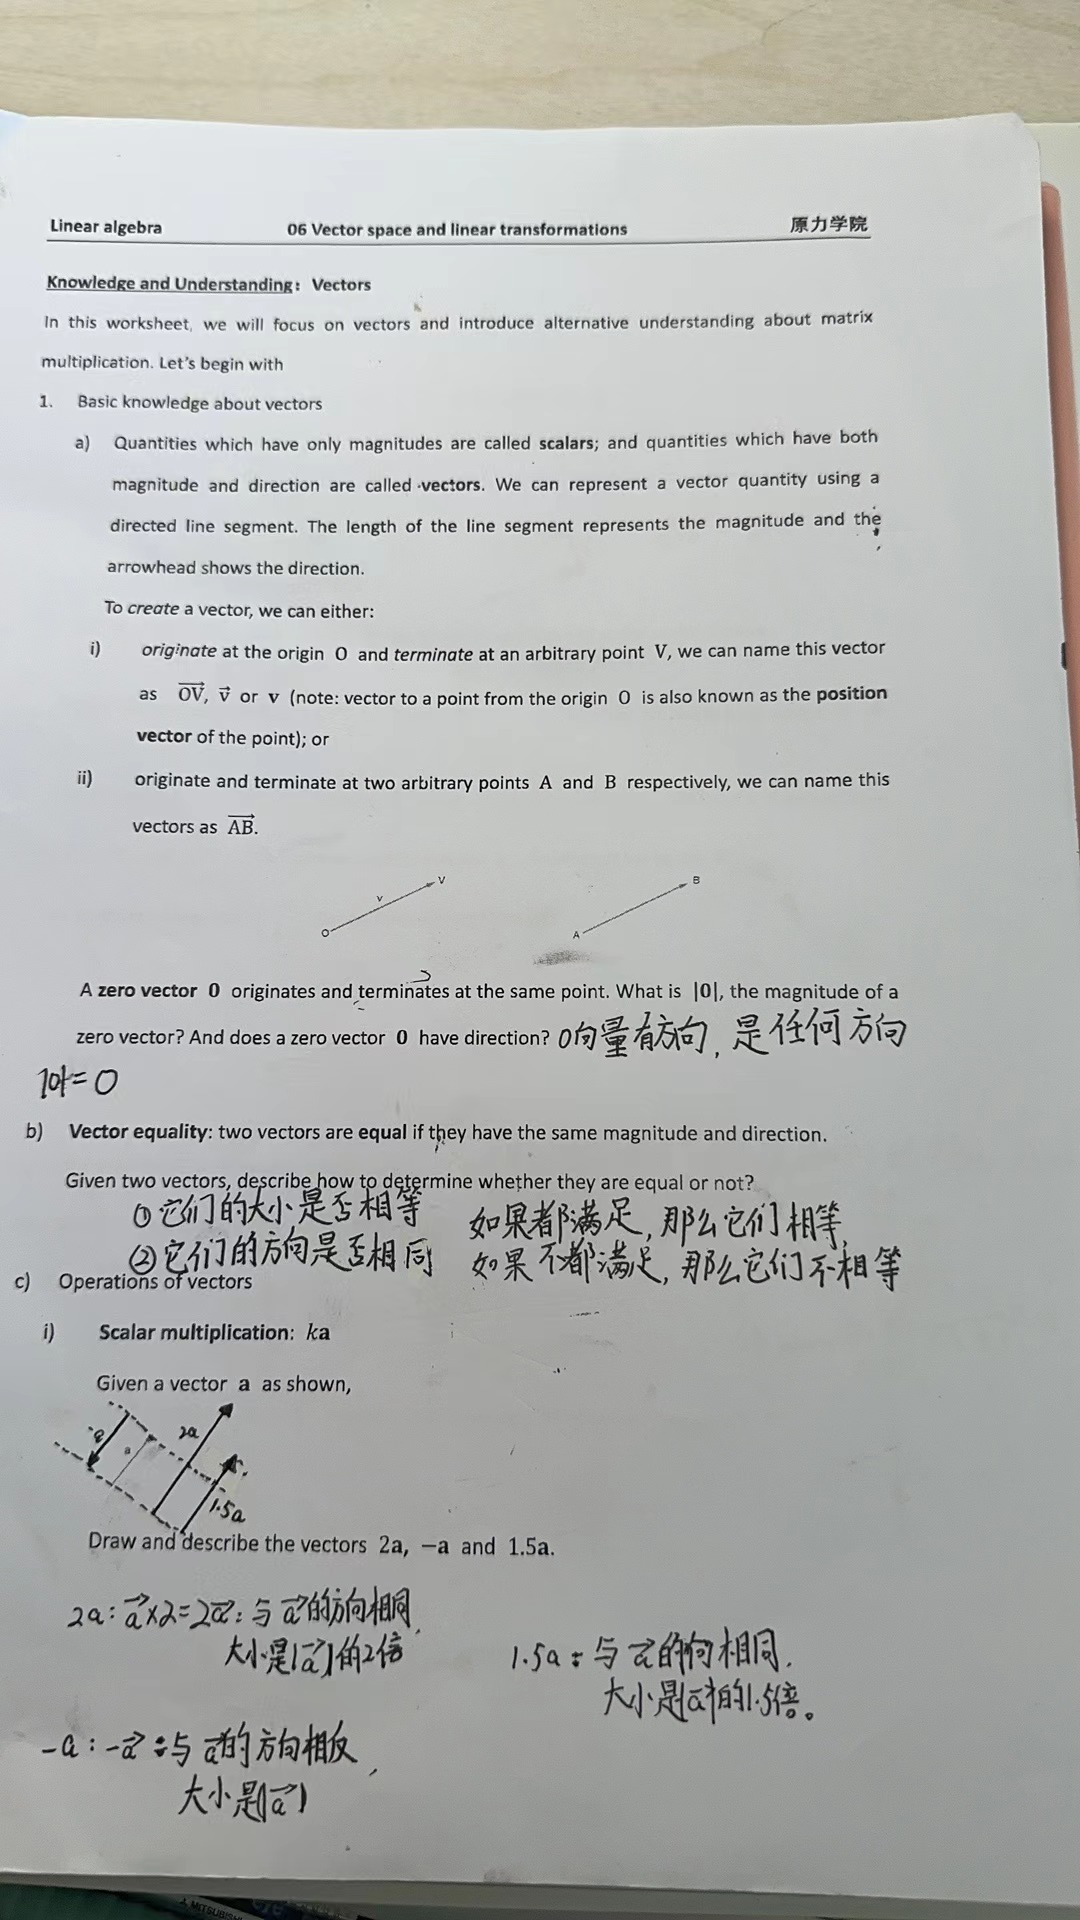 Linear algebra 06 Vector space and linear transformations 原力学院
Knowledge and Understanding: Vectors
In this worksheet, we will focus on vectors and introduce alternative understanding about matrix
multiplication. Let's begin with
1. Basic knowledge about vectors
a) Quantities which have only magnitudes are called scalars; and quantities which have both
magnitude and direction are called vectors. We can represent a vector quantity using a
directed line segment. The length of the line segment represents the magnitude and the
arrowhead shows the direction.
To create a vector, we can either:
i) originate at the origin O and terminate at an arbitrary point V, we can name this vector
as \overrightarrow{OV}, \vec{v} or v (note: vector to a point from the origin O is also known as the position
vector of the point); or
ii) originate and terminate at two arbitrary points A and B respectively, we can name this
vectors as \overrightarrow{AB}.
O v V A B
A zero vector 0 originates and terminates at the same point. What is |0|, the magnitude of a
zero vector? And does a zero vector 0 have direction? 0向量有方向,是任何方向
|0|=0
b) Vector equality: two vectors are equal if they have the same magnitude and direction.
Given two vectors, describe how to determine whether they are equal or not?
①它们的大小是否相等 如果都满足,那么它们相等,
②它们的方向是否相同 如果不都满足,那么它们不相等
c) Operations of vectors
i) Scalar multiplication: ka
Given a vector a as shown,
-a a 2a
1.5a
Draw and describe the vectors 2a, −a and 1.5a.
2a: \vec{a}×2=2\vec{a}: 与\vec{a}的方向相同,
大小是|\vec{a}|的2倍
1.5a: 与\vec{a}的方向相同.
大小是|\vec{a}|的1.5倍。
-a: -\vec{a}: 与\vec{a}的方向相反,
大小是|\vec{a}|
MITSUBISHI